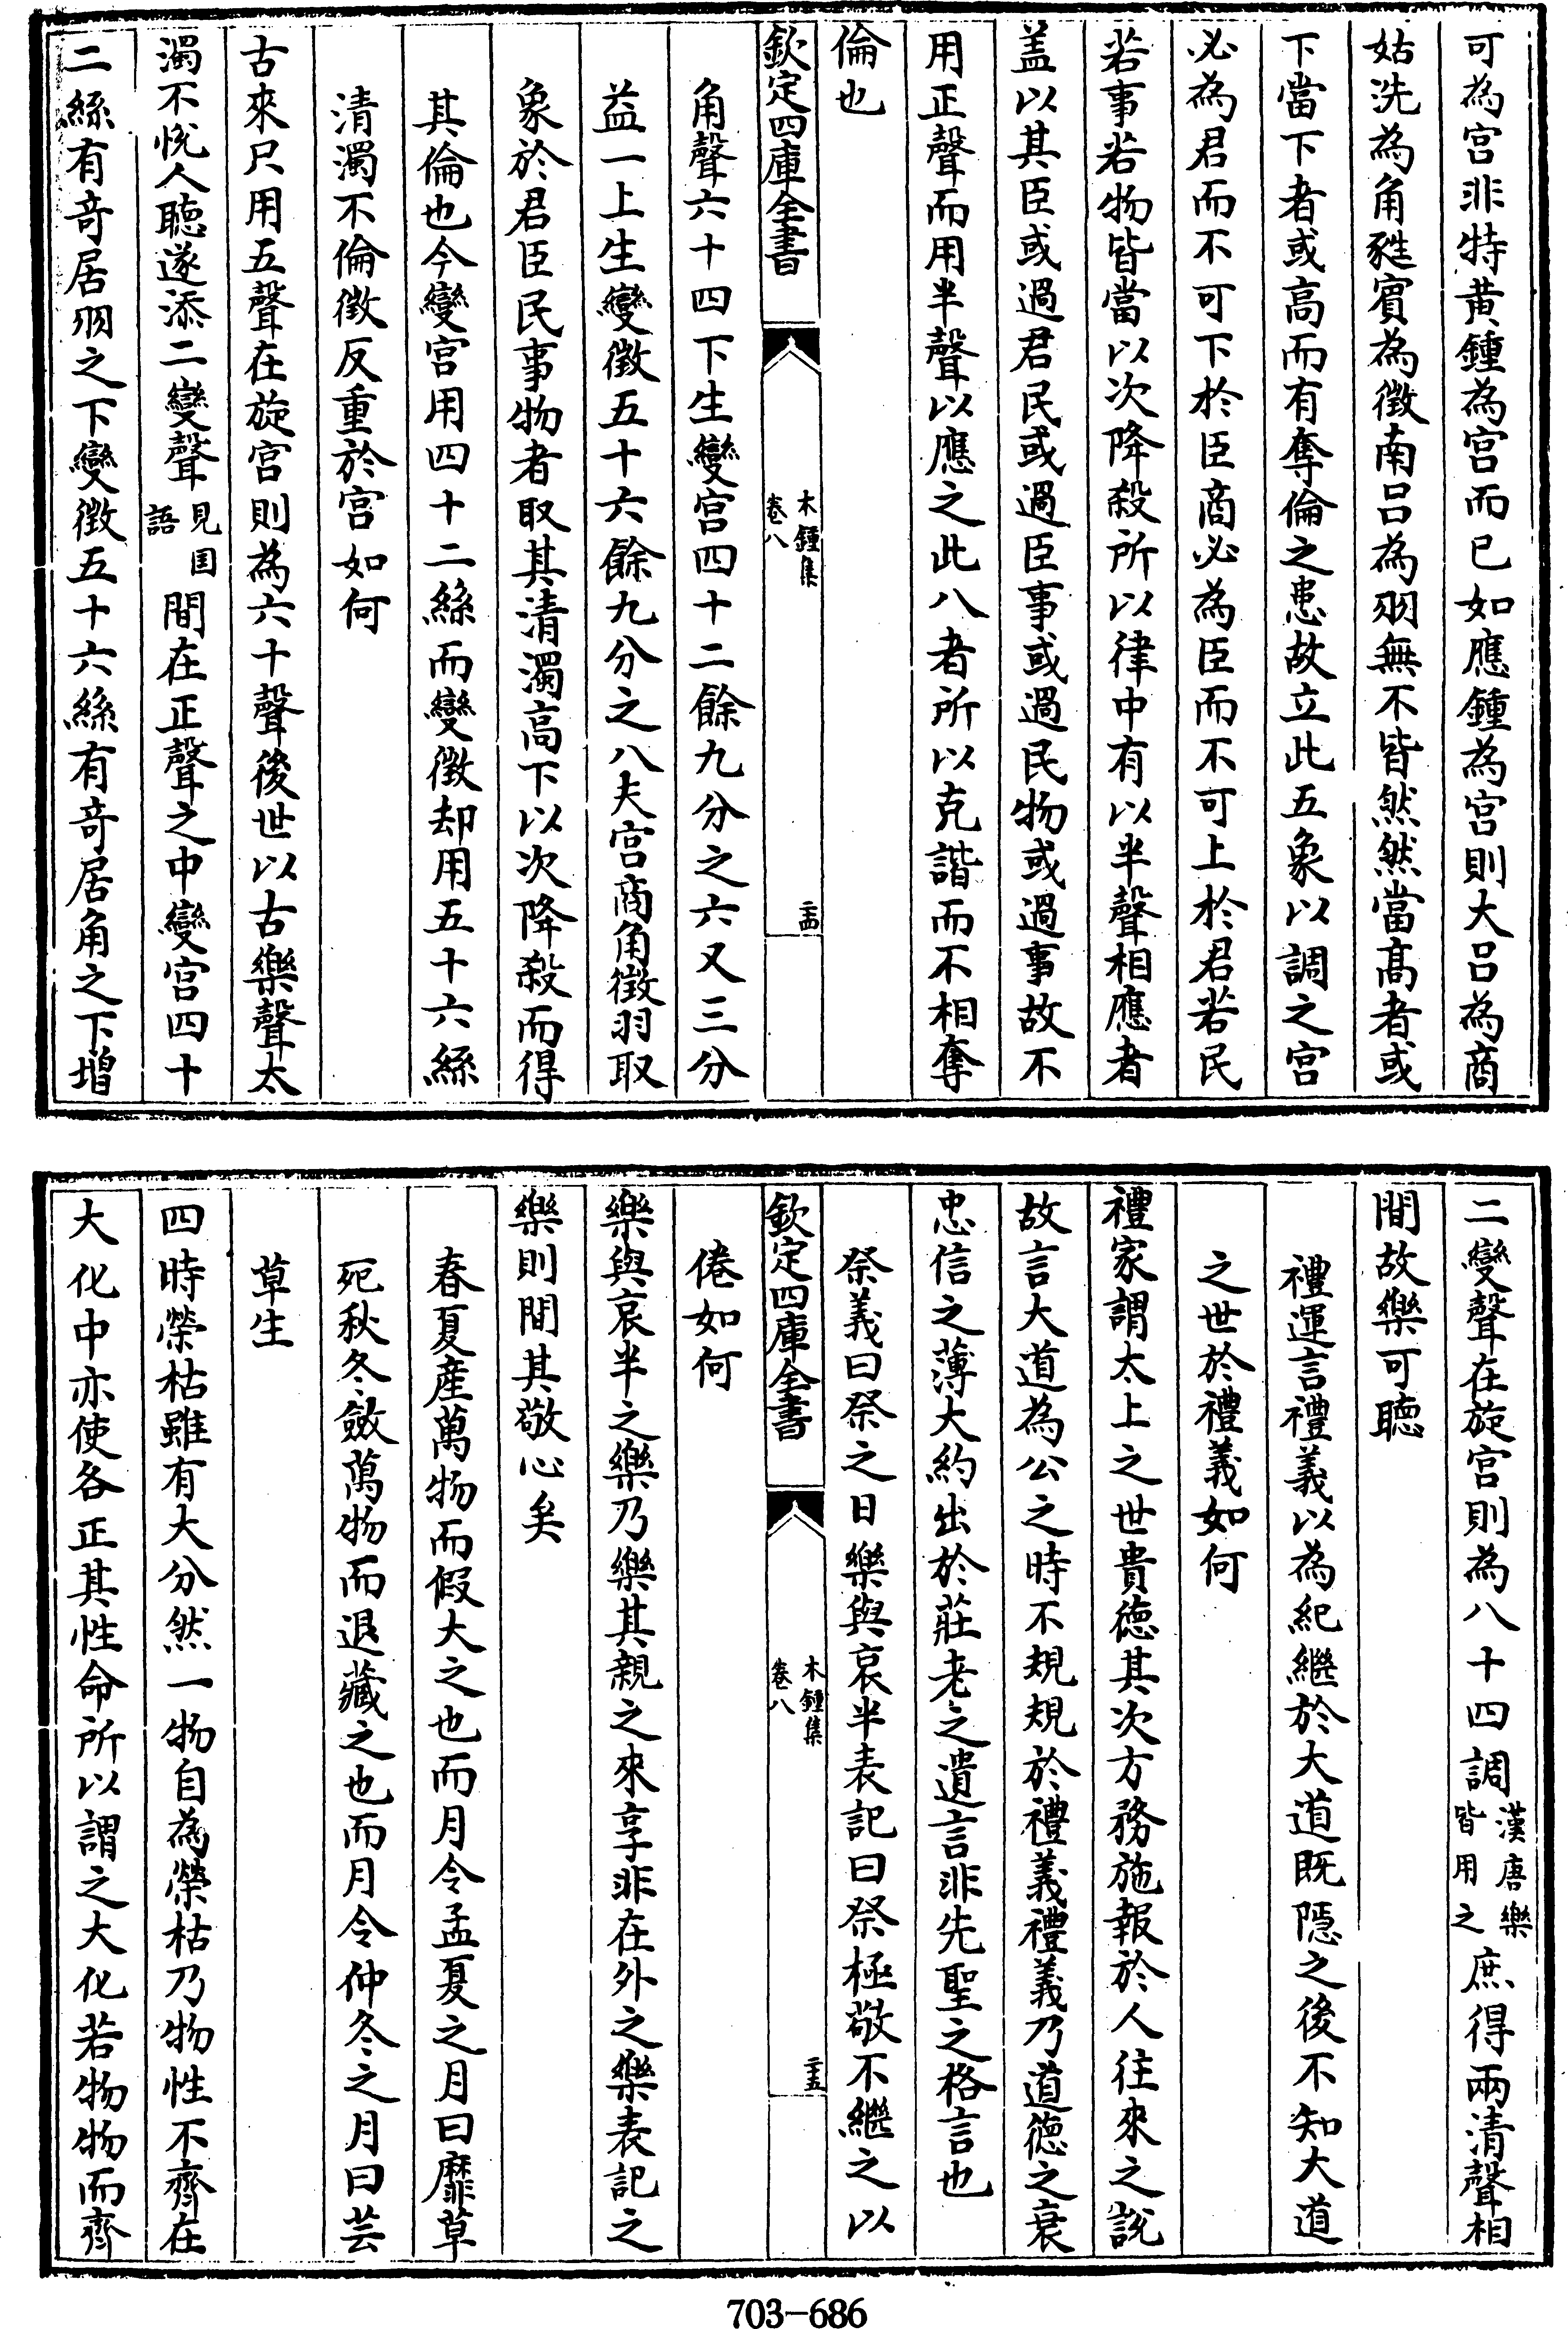 可為宮非特黄鍾為宮而已如應鍾為宮則大吕為商
姑洗為角蕤賓為徵南吕為羽無不皆然然當高者或
下當下者或高而有奪倫之患故立此五象以調之宮
必為君而不可下於臣商必為臣而不可上於君若民
若事若物皆當以次降殺所以律中有以半聲相應者
盖以其臣或過君民或過臣事或過民物或過事故不
用正聲而用半聲以應之此八者所以克諧而不相奪
倫也
欽定四庫全書
木鍾集
卷八
二十四
角聲六十四下生變宮四十二餘九分之六又三分
益一上生變徵五十六餘九分之八夫宮商角徵羽取
象於君臣民事物者取其清濁高下以次降殺而得
其倫也今變宮用四十二絲而變徵却用五十六絲
清濁不倫徵反重於宮如何
古來只用五聲在旋宮則為六十聲後世以古樂聲太
濁不悦人聽遂添二變聲見国語間在正聲之中變宮四十
二絲有竒居羽之下變徵五十六絲有竒居角之下増
二變聲在旋宮則為八十四調漢唐樂皆用之庶得兩清聲相
間故樂可聽
禮運言禮義以為紀繼於大道既隱之後不知大道
之世於禮義如何
禮家謂太上之世貴徳其次方務施報於人往來之說
故言大道為公之時不規規於禮義禮義乃道徳之衰
忠信之薄大約出於莊老之遺言非先聖之格言也
祭義曰祭之日樂與哀半表記曰祭極敬不繼之以
欽定四庫全書
木鍾集
卷八
二十五
倦如何
樂與哀半之樂乃樂其親之來享非在外之樂表記之
樂則間其敬心矣
春夏産萬物而假大之也而月令孟夏之月曰靡草
死秋冬斂萬物而退藏之也而月令仲冬之月曰芸
草生
四時榮枯雖有大分然一物自為榮枯乃物性不齊在
大化中亦使各正其性命所以謂之大化若物物而齊
703-686